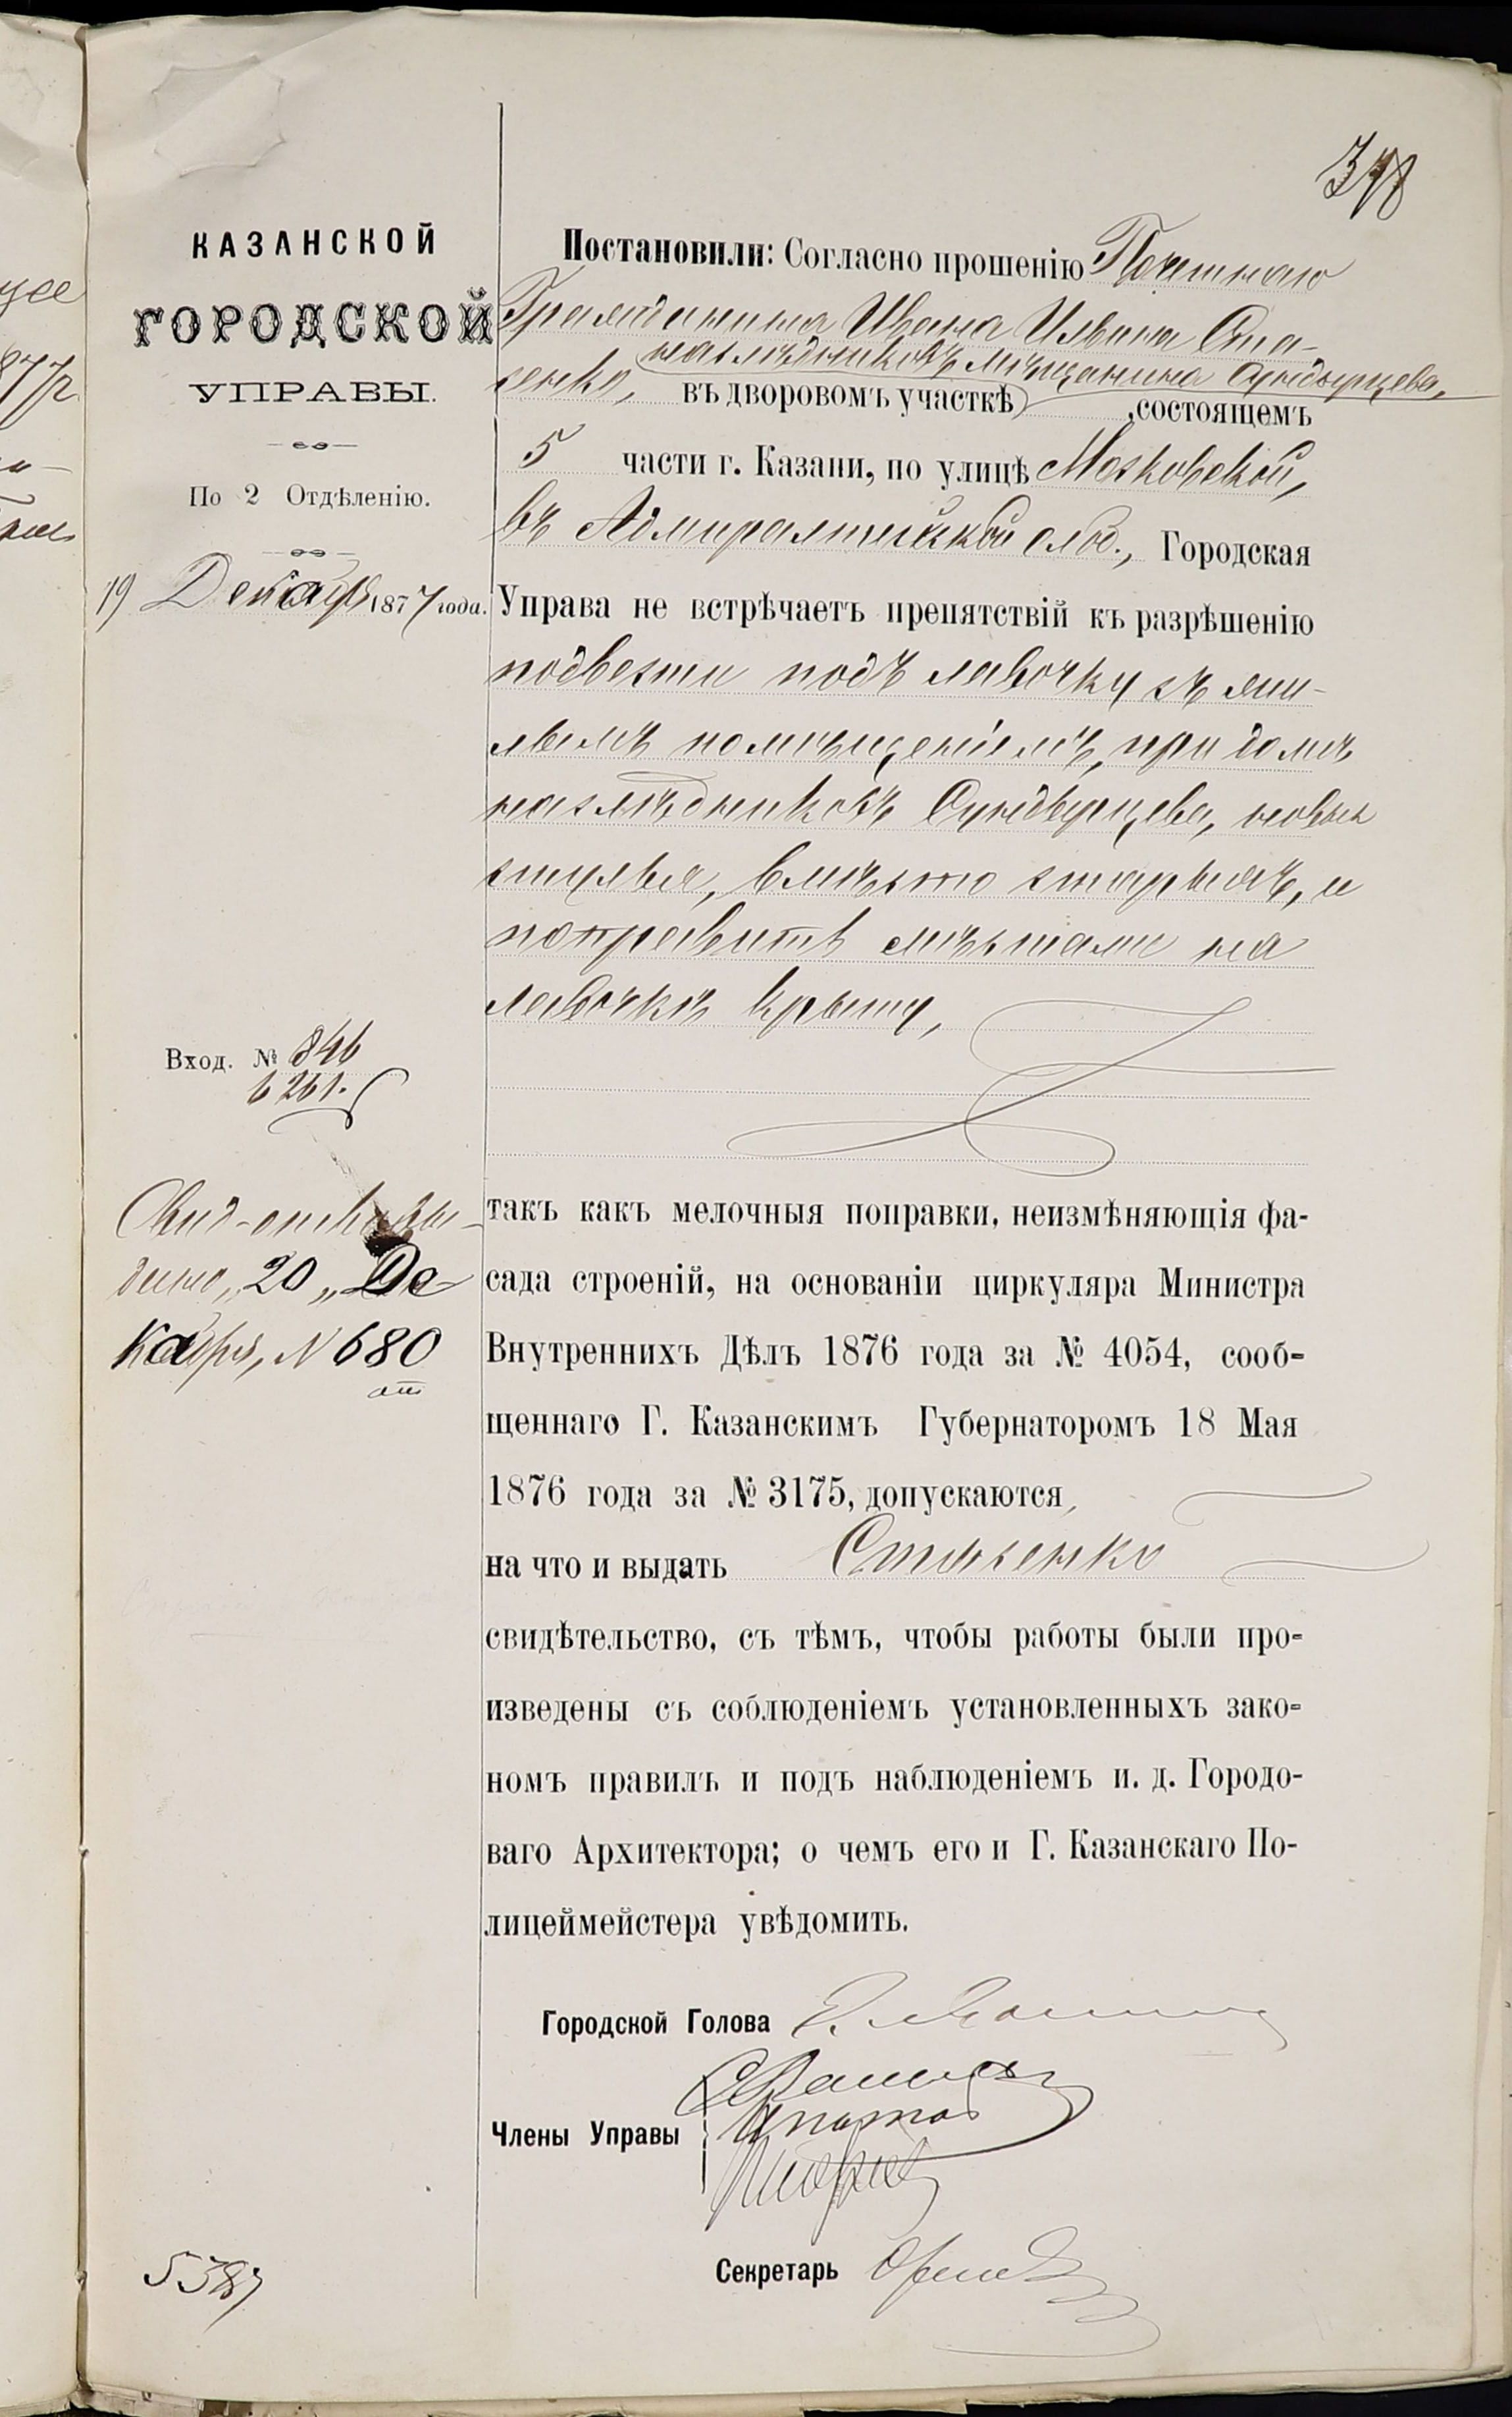 398
КАЗАНСКОЙ
ГОРОДСКОЙ
УПРАВЫ.
По 2 Отдѣленію.
19 Декабря 1877 года.
Вход. № 846
6261.
Свид-ство вы-
дано „20„ Де-
кабря, N 680
5387
Постановили: Согласно прошенію Почетнаго
Гражданина Ивана Ильина Ста-
сенко, въ дворовомъ участкѣ
наслѣдниковъ мѣщанина Сундырцева,
,состоящемъ
5 части г. Казани, по улицѣ Московской,
въ Адмиралтейской слоб., Городская
Управа не встрѣчаетъ препятствій къ разрѣшенію
подвести подъ лавочку съ жи-
лымъ помѣщеніемъ, при домѣ
наслѣдниковъ Сундырцева, новыя
стулья, вмѣсто старыхъ, и
поправить мѣстами на
лавочкѣ крышу,
такъ какъ мелочныя поправки, неизмѣняющія фа-
сада строеній, на основаніи циркуляра Министра
Внутреннихъ Дѣлъ 1876 года за № 4054, сооб-
щеннаго Г. Казанскимъ Губернаторомъ 18 Мая
1876 года за № 3175, допускаются,
на что и выдать Стасенко
свидѣтельство, съ тѣмъ, чтобы работы были про-
изведены съ соблюденіемъ установленныхъ зако-
номъ правилъ и подъ наблюденіемъ и. д. Городо-
ваго Архитектора; о чемъ его и Г. Казанскаго По-
лицеймейстера увѣдомить.
Городской Голова
Члены Управы
Секретарь